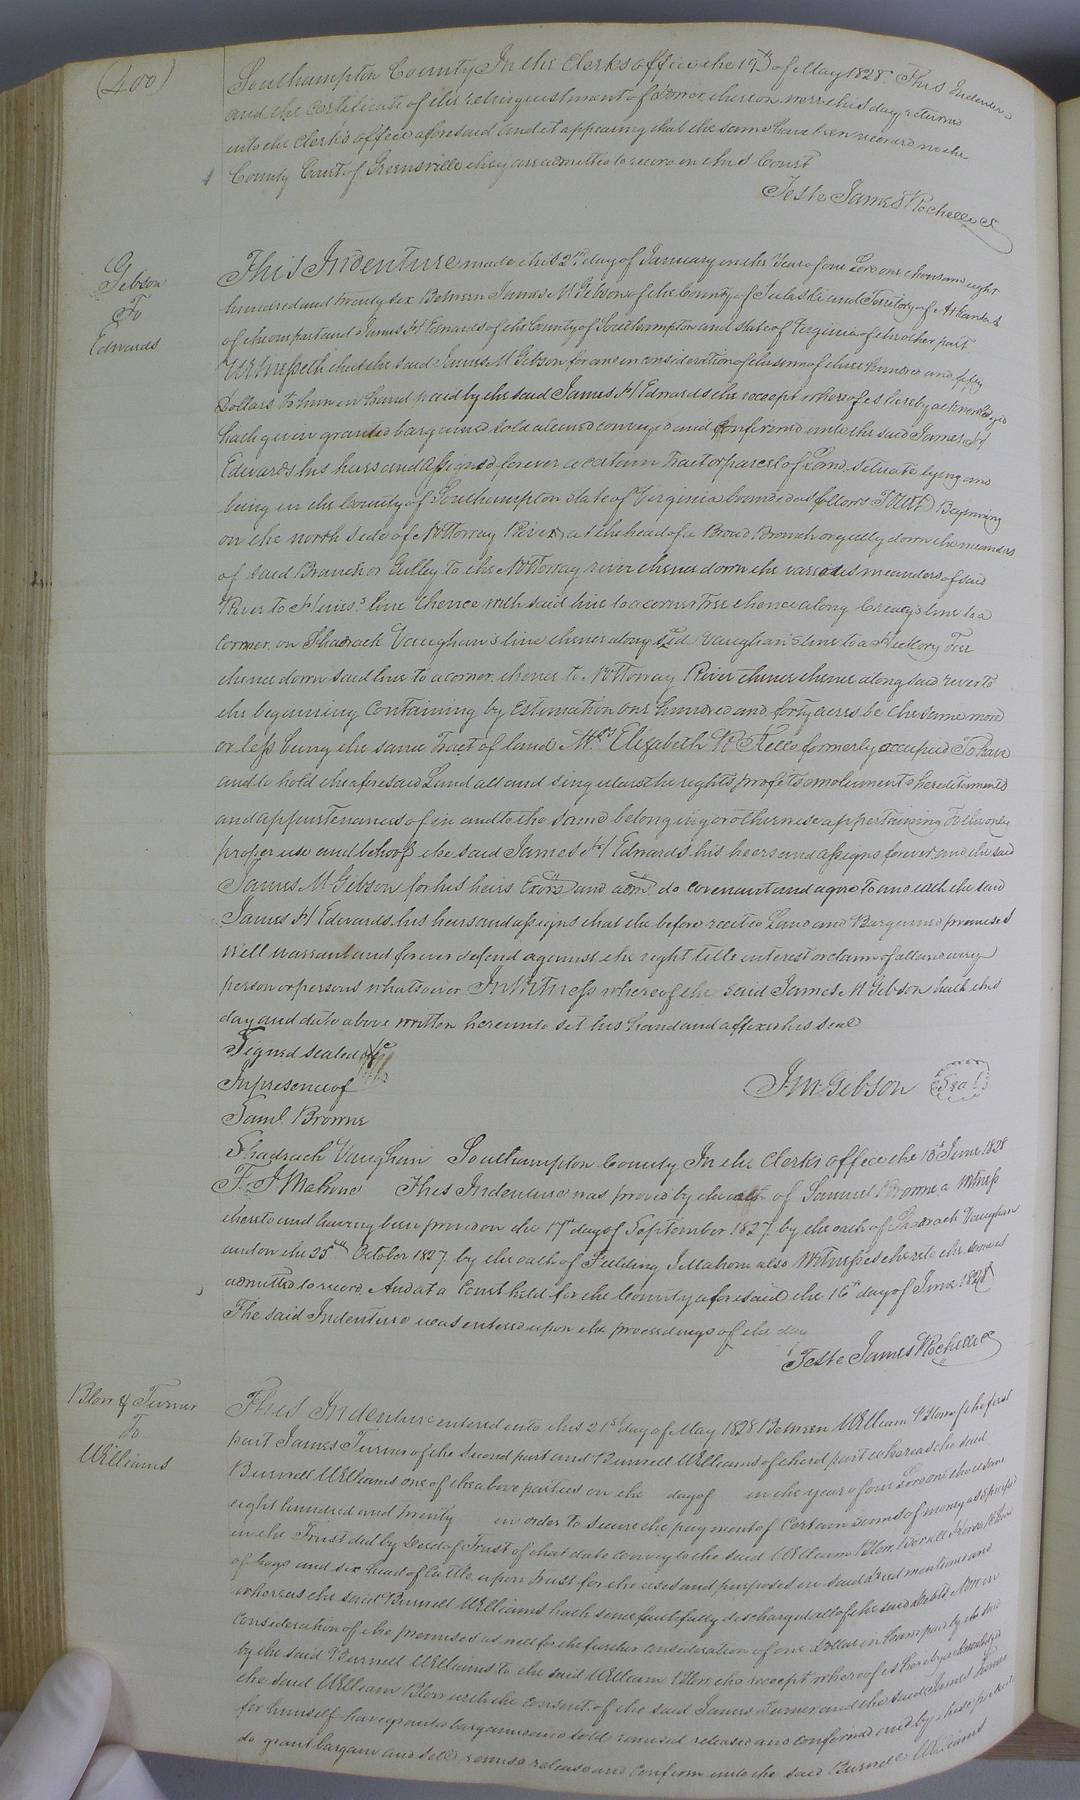 (400)
Southampton County In the Clerks office the 19th of May 1828. This Indenture
and the Certificate of the relinquishment of Dower thereon were this day returned
into the Clerk's office aforesaid and it appearing that the same have been recorded in the
County Court of Greensville they are admitted to record in this Court
Teste James Rochelle
Gibson
To
Edwards
This Indenture made this 2nd day of January in the Year of our Lord one thousand eight
hundred and twenty six Between James M Gibson of the County of Pulaski and Territory of Arkansas
of the one part and James H Edwards of the County of Southampton and state of Virginia of the other part
Witnesseth that the said James M Gibson for and in consideration of the sum of three hundred and fifty
Dollars to him in hand paid by the said James H Edwards the receipt whereof is hereby acknowledged
hath given granted bargained sold aliened conveyed and confirmed unto the said James H
Edwards his heirs and assigns forever a certain tract or parcel of Land situate lying and
being in the County of Southampton State of Virginia bounded as follows To Wit Beginning
on the north side of Nottoway River at the head of a Broad Branch or gully down the meanders
of said Branch or Gulley to the Nottoway river thence down the various meanders of said
River to line thence with said line to a corner Tree thence along line to a
Corner on Shadrack Vaughan's line thence along sd Vaughan's line to a Hickory Tree
thence down said line to a corner thence to Nottoway River thence thence along said river to
the beginning Containing by Estimation one hundred and forty acres be the same more
or less being the same Tract of land Mrs Elizabeth formerly occupied To have
and to hold the aforesaid Land all and singular the rights profits emoluments hereditaments
and appurtenances of in and to the same belonging or otherwise appertaining To the only
proper use and behoof the said James H Edwards his heirs and assigns forever and the said
James M Gibson for his heirs Exors and adm. do covenant and agree To and with the said
James H Edwards his heirs and assigns that the before recited Land and Bargained premises
Will warrant and forever defend against the right title interest or claim of all and every
person or persons whatsoever In Witness whereof the said James M Gibson hath this
day and date above written hereunto set his hand and affixed his seal
Signed sealed &c
In presence of
Jm Gibson Seal
Saml. Browne
Shadrach Vaughan Southampton County In the Clerks office the 16th June 1828
F. J Mahone This Indenture was proved by the oath of Samuel Browne a witness
thereto and having been proved on the 17th day of September 1827 by the oath of Shadrach Vaughan
and on the 25th October 1827 by the oath of Fielding J Mahone also Witnesses thereto the same is
admitted to record, And at a Court held for the County aforesaid the 16th day of June 1828
The said Indenture was entered upon the proceedings of the day
Teste James Rochelle
Blow & Turner
To
Williams
This Indenture entered into this 21st day of May 1828 Between William Blow of the first
part James Turner of the second part and Burwell Williams of third part whereas the said
Burwell Williams one of the above parties on the day of in the year of our Lord one thousand
eight hundred and twenty in order to secure the payment of Certain sums of money
in the Trust did by Deed of Trust of that date convey to the said William Blow
of hogs and six head of Cattle upon trust for the uses and purposes in said Deed mentioned and
whereas the said Burwell Williams hath since faithfully discharged all of the said Debts Now in
Consideration of the premises as well for the further consideration of one Dollar in hand paid by the said
by the said Burwell Williams to the said William Blow the receipt whereof is hereby acknowledged
the said William Blow with the consent of the said James Turner and the said James Turner
for himself have granted bargained and sold remised released and confirmed and by these presents
do grant bargain and sell remise release and Confirm unto the said Burwell Williams